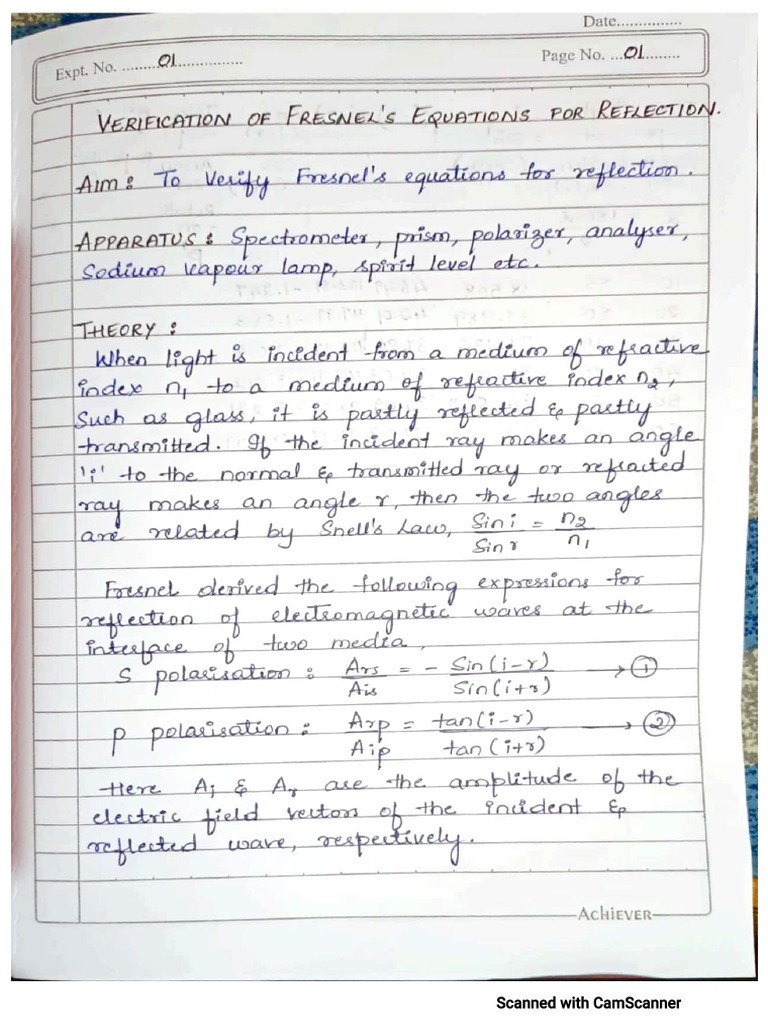 Date...............
Expt. No. .........01................
Page No. ...01........
VERIFICATION OF FRESNEL'S EQUATIONS FOR REFLECTION.
AIM: To Verify Fresnel's equations for reflection.
APPARATUS: Spectrometer, prism, polarizer, analyser,
Sodium vapour lamp, spirit level etc.
THEORY:
When light is incident from a medium of refractive
index n₁ to a medium of refractive index n₂,
Such as glass, it is partly reflected & partly
transmitted. If the incident ray makes an angle
'i' to the normal & transmitted ray or refracted
ray makes an angle r, then the two angles
are related by Snell's Law, Sin i / Sin r = n₂ / n₁
Fresnel derived the following expressions for
reflection of electromagnetic waves at the
interface of two media,
S polarisation: Ars / Ais = - Sin(i-r) / Sin(i+r) → ①
p polarisation: Arp / Aip = tan(i-r) / tan(i+r) → ②
Here Ai & Ar are the amplitude of the
electric field vectors of the incident &
reflected wave, respectively.
ACHIEVER
Scanned with CamScanner